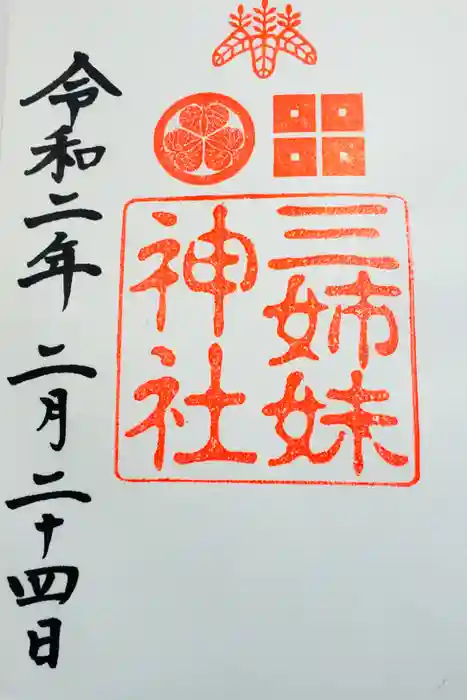 三姉妹
神社
令和二年 二月二十四日